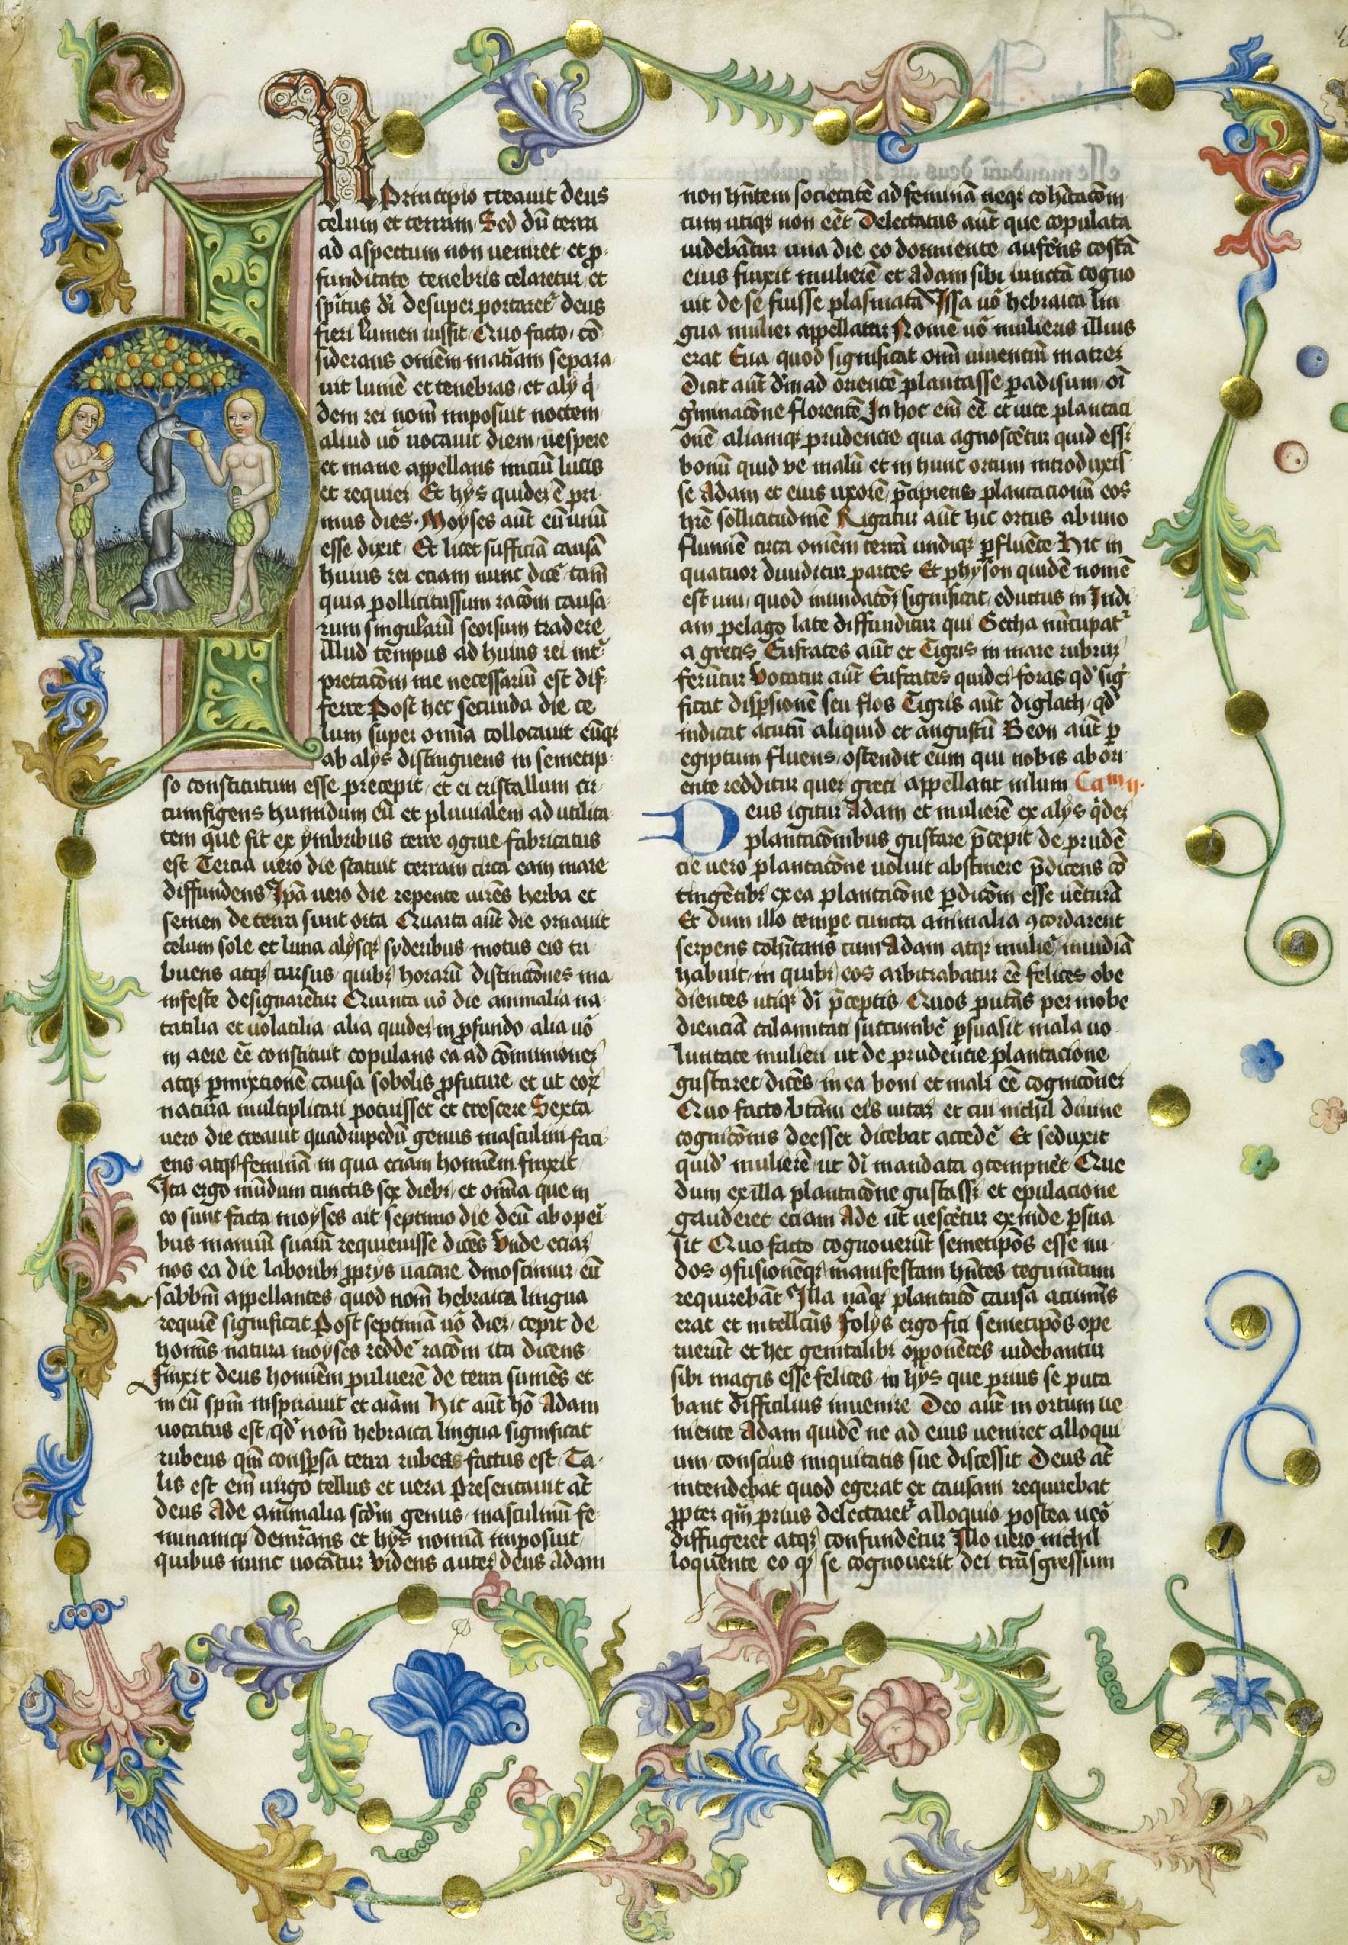 N Principio creauit deus
celum et terram Sed dū terra
ad aspectum non veniret et ꝓ
funditate tenebris celaretur et
sp̄itus dī desuper portaretʳ deus
fieri lumen iussit Quo facto cō
siderans omēm mat̄iam separa
uit lumē et tenebras et alij q̇
dem rei nom̄ imposuit noctem
aliud uō uocauit diem uespere
et mane appellans iniciū lucis
et requiei Et hijs quidē ē pri
mus dies Moyses aūt eū unū
esse dixit Et licet sufficiā causā
huius rei eciam nunc dicē tam̄
quia pollicitus sum racōm causa
rum singularū seorsum tradere
illud tempus ad huius rei int
pretacōm me necessariū est dif
ferre Post hec secunda die ce
lum super omīa collocauit eūqꝫ
ab alijs distinguens in semetip
so constitutum esse precepit et ei cristallum cir
cumfigens humidum eū et pluuialem ad utilita
tem que fit ex ymbribus terre ꝯgrue fabricatus
est Tercia uero die statuit terram circa eam mare
diffundens Ipā uero die repente uirēs herba et
semen de terra sunt orta Quarta aūt die ornauit
celum sole et luna alijsqꝫ syderibus motus eis tri
buens atqꝫ cursus quibꝫ horarū distinctōnes ma
nifeste designarētur Quinta uō die animalia na
tatilia et uolatilia alia quidē in ꝓfundo alia uō
in aere ēē constituit copulans ea ad cōmunionē
atqꝫ ꝑmixtionē causa sobolis ꝓfuture et ut eoꝝ
natura multiplicari potuisset et crescere Sexta
uero die creauit quadrupedū genus masculinū faci
ens atqꝫ feminā in qua eciam homīem finxit
Ita ergo mūdum cunctis sex diebꝫ et omīa que in
eo sunt facta moyses ait septimo die deū ab operi
bus manuū suarū requieuisse dicēs Vnde eciam
nos ea die laboribꝫ ꝓprijs uacare dinoscimur eū
sabbm̄ appellantes quod nom̄ hebraica lingua
requiē significat Post septimā uō diē cepit de
homīs natura moyses reddē racōm ita dicens
Finxit deus homīem puluerē de terra sumēs et
in eū sp̄m inspirauit et aīam Hic aūt hō Adam
uocatus est qd̄ nom̄ hebraica lingua significat
rubeus qm̄ conspsa terra rubea factus est Ta
lis est em̄ uirgo tellus et uera Presentauit at̄
deus Ade animalia scd̄m genus masculinū fe
mininumqꝫ demr̄ans et hijs nomīa imposuit
quibus nunc uocātur Videns autē deus Adam
non hn̄tem societatē ad feminā neqꝫ cohītacōm
cum utiqꝫ non eēt Delectatus aūt que copulata
uidebātur una die eo dormiente auferēs costā
eius finxit mulierē et Adam sibi iunctā cogno
uit de se fuisse plasmatā Issa uō hebraica lin
gua mulier appellatur Nomē uō mulieris illius
erat Eua quod significat omī uiuentiū matrē
Dicit aūt dm̄ ad orientē plantasse ꝑadisum oī
gminacōne florentē In hoc em̄ eē et uite plantaci
onē aliamqꝫ prudencie qua agnoscētur quid esset
bonū quid ve malū et in hunc ortum introduxis
se Adam et eius uxorē p̄cipiens plantacionū eos
hr̄e sollicitudinē Rigatur aūt hic ortus ab uno
flumīe circa omēm terrā undiqꝫ ꝑfluēte Hic in
quatuor diuiditur partes Et physon quidē nomē
est uni quod inundatōꝫ significat eductus in Indi
am pelago late diffunditur qui Getha nūcupatʳ
a grecis Eufrates aūt et Tigris in mare rubrū
ferūtur Vocatur aūt Eufrates quidē foras qd̄ sig
ficat dispsionē seu flos Tigris aūt diglath qd̄
indicat acutū aliquid et angustū Geon aūt ꝑ
egiptum fluens ostendit eum qui nobis ab ori
ente redditur quē greci appellant nilum Caᵐ ij.
Deus igitur Adam et mulierē ex alijs q̇dē
plantacōnibus gustare p̄cepit de prudē
cie uero plantacōne uoluit abstinere p̄dicens cō
tingētibꝫ ex ea plantacōne ꝑdicōm esse uēturā
Et dum illo tempe cuncta animalia ꝯcordarent
serpens cohītans cum Adam atqꝫ muliē inuidiā
habuit in quibꝫ eos arbitrabatur ēē felices obe
dientes utiqꝫ dī p̄ceptis Quos putās per inobe
dienciā calamitati succumbē ꝑsuasit mala uo
luntate mulieri ut de prudencie plantacione
gustaret dicēs in ea boni et mali ēē cognicōnē
Quo facto btām eis uitā et cui nichil diuine
cognicōnis deesset dicebat accedē Et seduxit
quid' mulierē ut dī mandata ꝯtempnēt Que
dum ex illa plantacōne gustasset et epulacione
gauderet eciam Ade ut uescētur exinde ꝑsua
sit Quo facto cognouerūt semetipōs esse nu
dos ꝯfusionēqꝫ manifestam hn̄tes tegumtum
requirebāt Illa naqꝫ plantatō causa acumīs
erat et intellcūs Folijs ergo fici semetipōs ope
ruerūt et hec genitalibꝫ opponētes uidebantur
sibi magis esse felices in hijs que prius se puta
bant difficilius inuenire Deo aūt in ortum ue
niente Adam quidē ne ad eius ueniret alloqui
um conscius iniquitatis sue discessit Deus at̄
intendebat quod egerat et causam requirebat
ꝓpter qm̄ prius delectaretʳ alloquio postea uō
diffugeret atqꝫ confundētur Illo uero nichil
loquente eo qd̄ se cognouerit dei trāsgressum